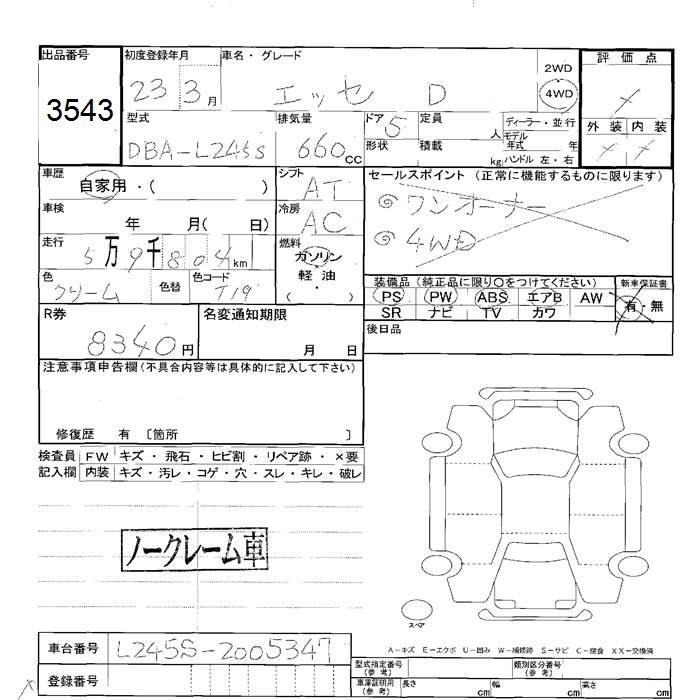 出品番号
3543
初度登録年月
23 3月
車名・グレード
エッセ D
2WD
4WD
評価点
外装 内装
型式
DBA-L245S
排気量
660cc
ドア 5
形状
定員 人
積載 kg
ディーラー・並行
モデル年式 年
ハンドル 左・右
車歴
自家用・( )
シフト
AT
車検
年 月( 日)
冷房
AC
走行
5万9千804km
燃料
ガソリン
軽・油
( )
色
クリーム
色替
色コード
T19
セールスポイント (正常に機能するものに限ります)
◎ワンオーナー
◎4WD
装備品 (純正品に限り○をつけてください)
PS PW ABS エアB AW
SR ナビ TV カワ
新車保証書
有・無
後日品
R券
8340円
名変通知期限
月 日
注意事項申告欄(不具合内容等は具体的に記入して下さい)
修復歴 有 〔箇所 〕
検査員記入欄
FW キズ・飛石・ヒビ割・リペア跡・×要
内装 キズ・汚レ・コゲ・穴・スレ・キレ・破レ
ノークレーム車
スペア
A-キズ E-エクボ U-凹み W-補修跡 S-サビ C-腐食 XX-交換済
車台番号
L245S-2005347
登録番号
型式指定番号(参考)
類別区分番号(参考)
車庫証明用(参考)
長さ cm 幅 cm 高さ cm